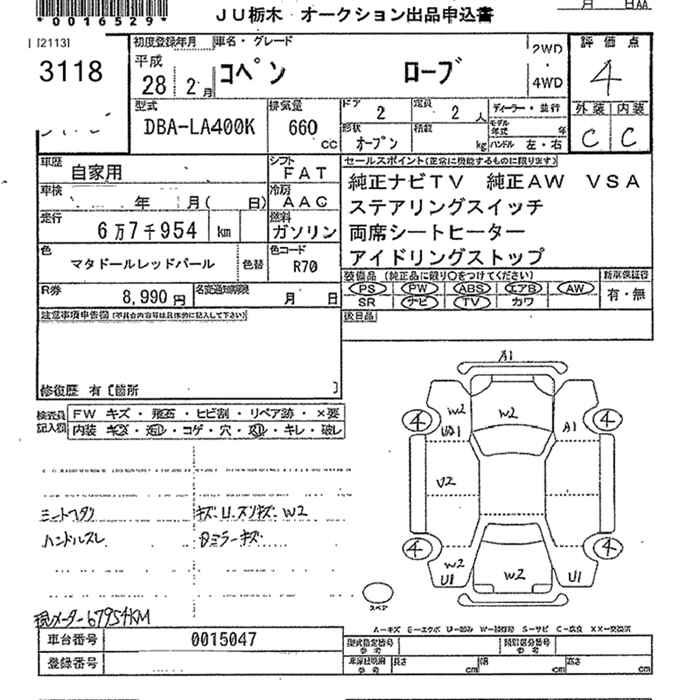 *0016529*
JU栃木 オークション出品申込書
月 日AA
[2113]
3118
初度登録年月 車名・グレード
平成
28 2月
コペン ローブ
2WD
4WD
評価点
4
型式
DBA-LA400K
排気量
660 cc
ドア 2
定員 2 人
形状 オープン
積載 kg
ディーラー・並行
モデル年式 年
ハンドル 左・右
外装 内装
C C
車歴 自家用
シフト FAT
車検 年 月( 日)
冷房 AAC
走行 6万7千954 km
燃料 ガソリン
色 マタドールレッドパール
色替
色コード R70
R券 8,990円
名変通知期限 月 日
セールスポイント(正常に機能するものに限ります)
純正ナビTV 純正AW VSA
ステアリングスイッチ
両席シートヒーター
アイドリングストップ
装備品 (純正品に限り○をつけてください)
新車保証書
PS PW ABS エアB AW
SR ナビ TV カワ
有・無
後日品
注意事項申告欄(不具合内容等は具体的に記入して下さい)
修復歴 有〔箇所 〕
検査員記入欄
FW キズ・飛石・ヒビ割・リペア跡・×要
内装 キズ・汚れ・コゲ・穴・スレ・キレ・破レ
シートヘタリ
ハンドルスレ
キズ.U.スリキズ.W2
Dミラーキズ
現メーター67954KM
A1
W2
UA1
W2
A1
4
4
U2
4
4
W2
U1
W2
U1
スペア
A-キズ E-エクボ U-凹み W-補修跡 S-サビ C-腐食 XX-交換済
車台番号 0015047
登録番号
型式指定番号 参考
類別区分番号 参考
車庫証明用 参考
長さ cm
幅 cm
高さ cm